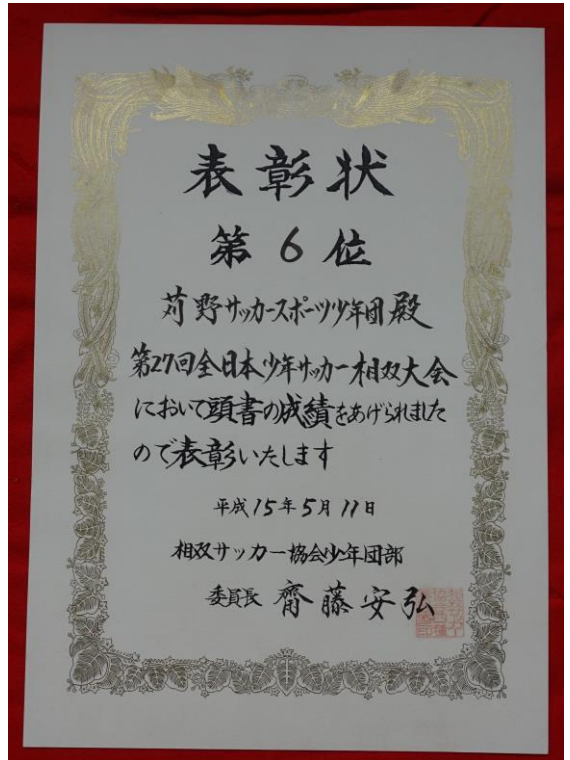 表彰状
第6位
苅野サッカースポーツ少年団殿
第27回全日本少年サッカー相双大会
において頭書の成績をあげられました
ので表彰いたします
平成15年5月11日
相双サッカー協会少年団部
委員長 齊藤安弘